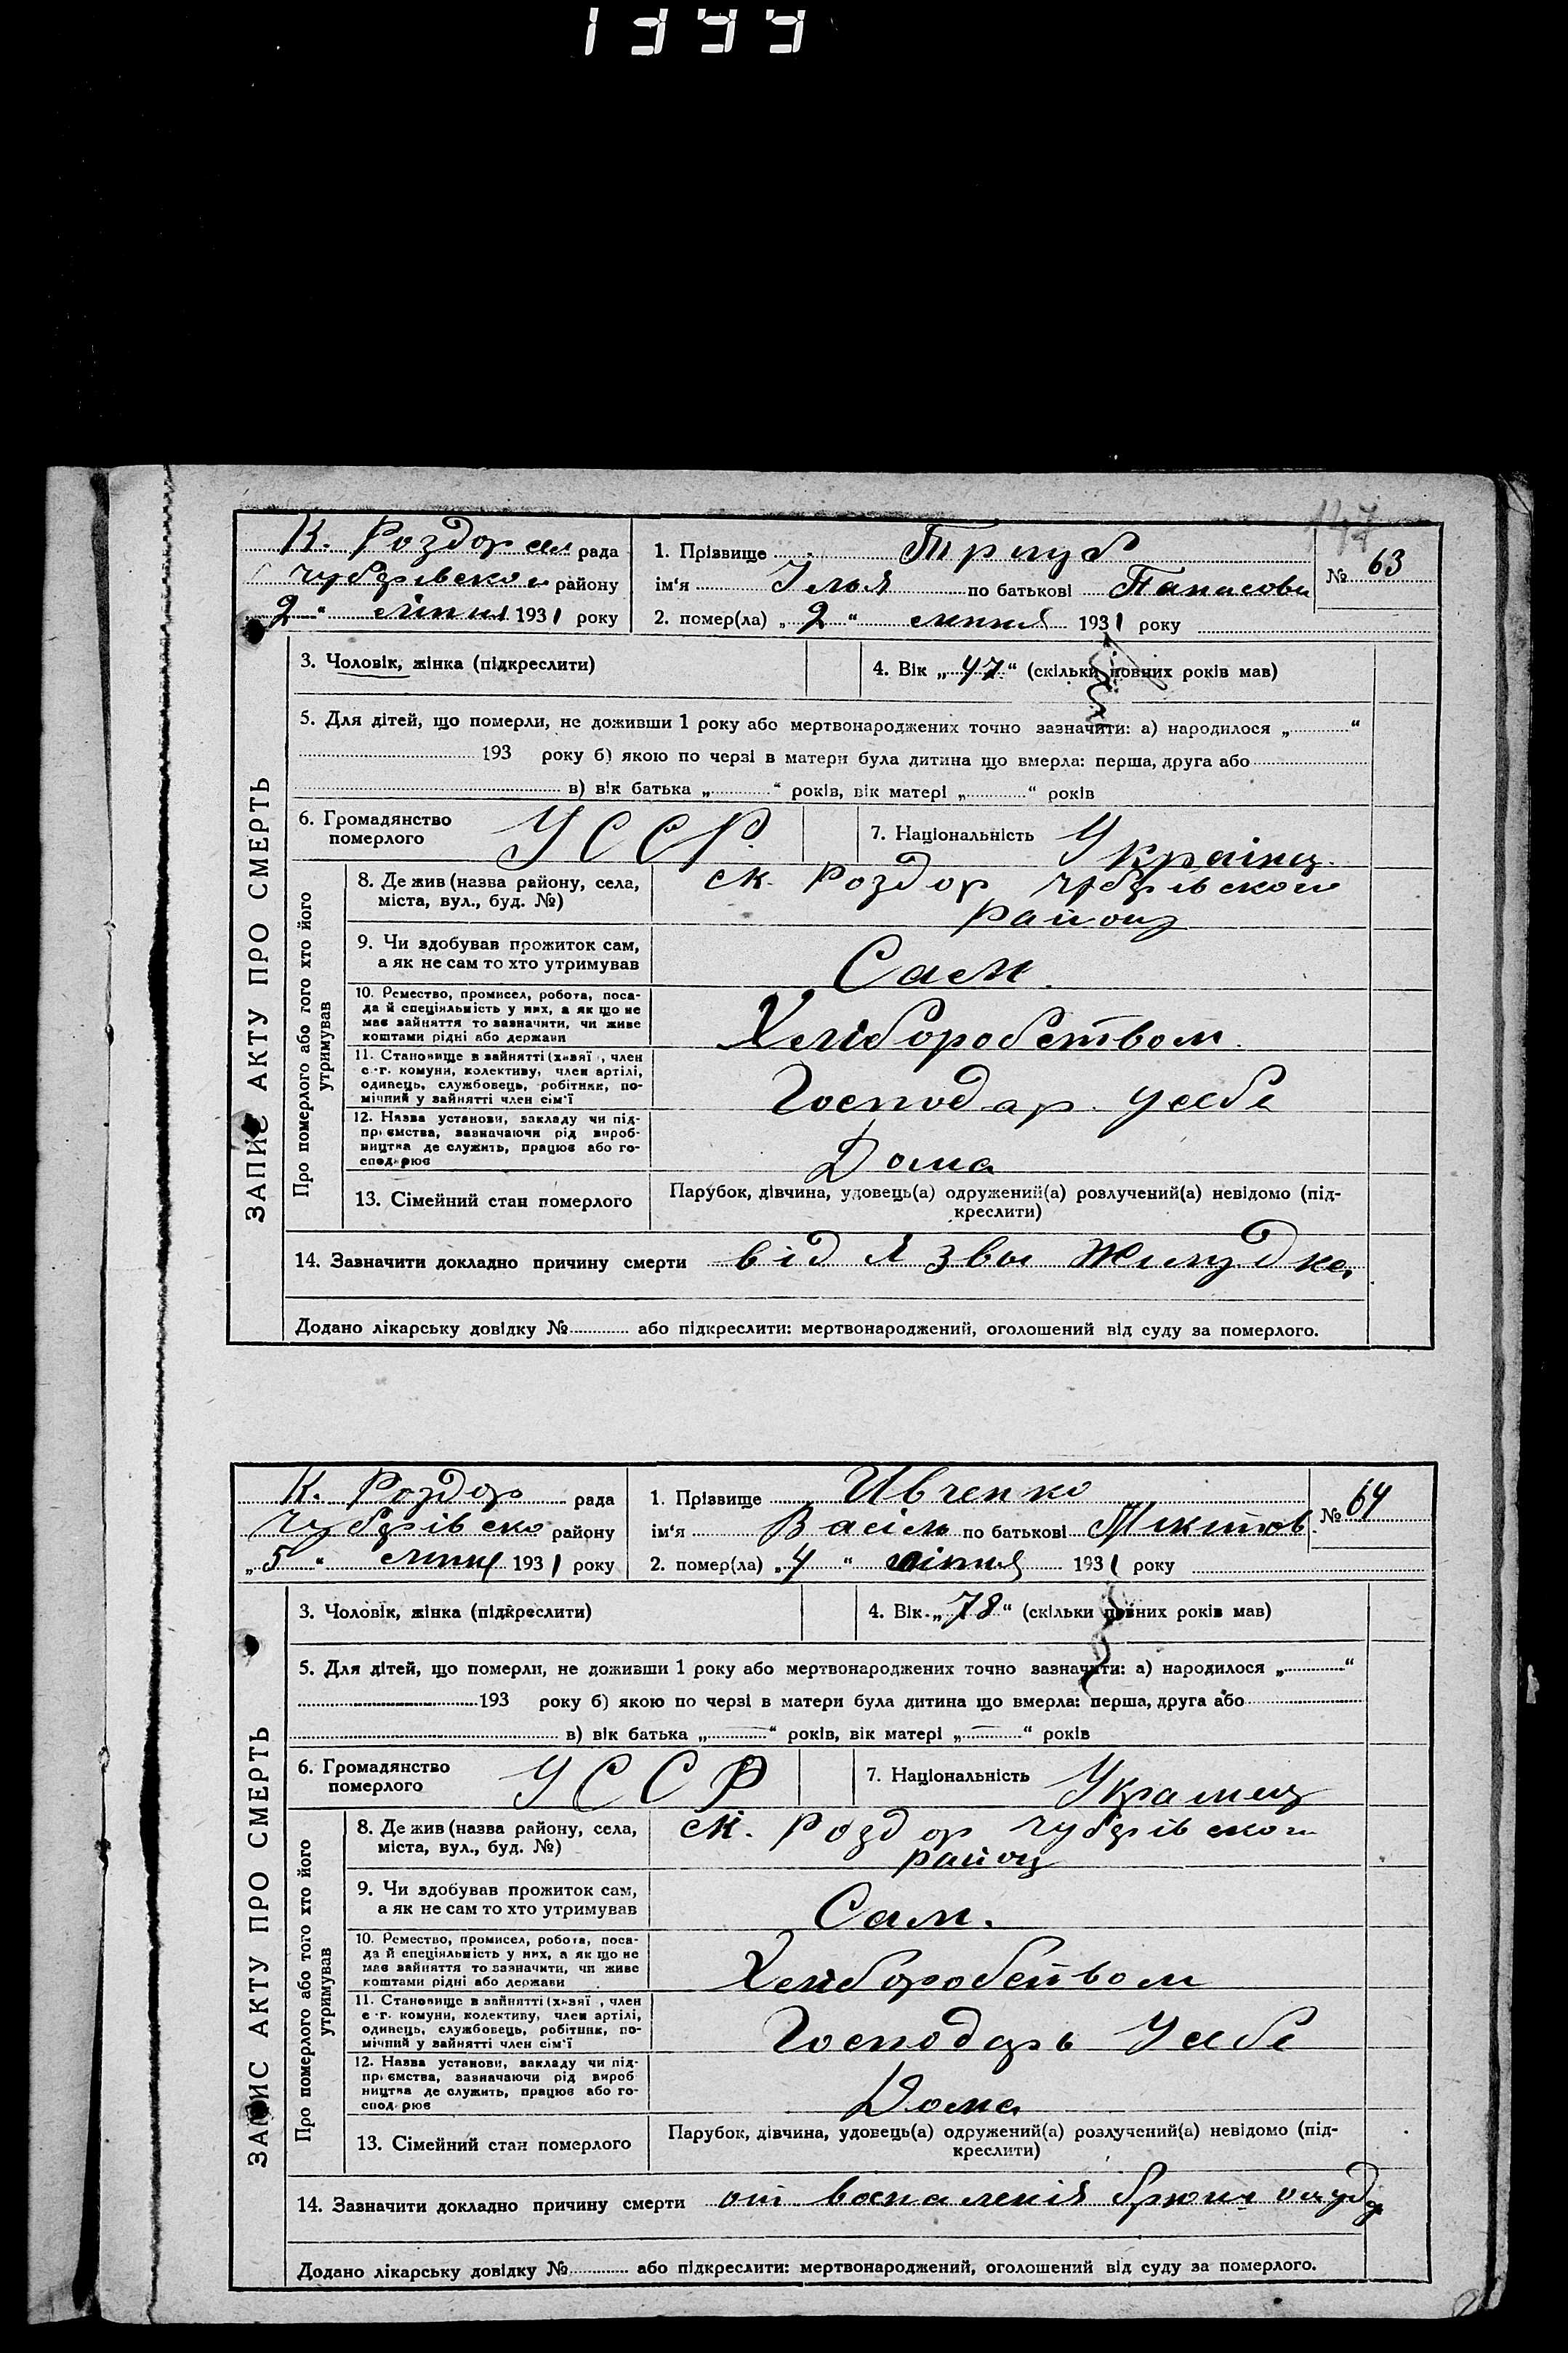 1399
147
К. Роздор сел рада
Чубарівского району
"2" липня 1931 року
1. Прізвище
ім'я Ілья по батькові Панасови
№ 63
2. помер(ла) „2" липня 1931 року
ЗАПИС АКТУ ПРО СМЕРТЬ
3. Чоловік, жінка (підкреслити)
4. Вік „47" (скільки повних років мав)
5. Для дітей, що померли, не доживши 1 року або мертвонароджених точно зазначити: а) народилося „ "
193 року б) якою по черзі в матери була дитина що вмерла: перша, друга або
в) вік батька „ " років, вік матері „ " років
6. Громадянство
померлого
УССР.
7. Національність Українц.
Про померлого або того хто його
утримував
8. Де жив (назва району, села,
міста, вул., буд. №)
ск. Роздор Чубарівского
району
9. Чи здобував прожиток сам,
а як не сам то хто утримував
Сам.
10. Ремество, промисел, робота, поса-
да й спеціяльність у них, а як що не
має зайняття то зазначити, чи живе
коштами рідні або держави
Хліборобством.
11. Становище в зайнятті (хазяї, член
с.-г. комуни, колективу, член артілі,
одинець, службовець, робітник, по-
мічний у зайнятті член сім'ї
Господар. Усебе
12. Назва установи, закладу чи під-
приємства, зазначаючи рід вироб-
ництва де служить, працює або го-
сподарює
Дома
13. Сімейний стан померлого
Парубок, дівчина, удовець(а) одружений(а) розлучений(а) невідомо (під-
креслити)
14. Зазначити докладно причину смерти від Язвы Жилудка,
Додано лікарську довідку № або підкреслити: мертвонароджений, оголошений від суду за померлого.
К. Роздор рада
Чубарівско району
„5" липня 1931 року
1. Прізвище Ивченко
ім'я Васіль по батькові Мікитов.
№ 64
2. помер(ла) „4" ліпня 1931 року
ЗАПИС АКТУ ПРО СМЕРТЬ
3. Чоловік, жінка (підкреслити)
4. Вік „78" (скільки повних років мав)
5. Для дітей, що померли, не доживши 1 року або мертвонароджених точно зазначити: а) народилося „ "
193 року б) якою по черзі в матери була дитина що вмерла: перша, друга або
в) вік батька „—" років, вік матері „—" років
6. Громадянство
померлого
УССР
7. Національність Украинец
Про померлого або того хто його
утримував
8. Де жив (назва району, села,
міста, вул., буд. №)
ск. Роздор Чубарівского
району
9. Чи здобував прожиток сам,
а як не сам то хто утримував
Сам.
10. Ремество, промисел, робота, поса-
да й спеціяльність у них, а як що не
має зайняття то зазначити, чи живе
коштами рідні або держави
Хліборобством
11. Становище в зайнятті (хазяї, член
с.-г. комуни, колективу, член артілі,
одинець, службовець, робітник, по-
мічний у зайнятті член сім'ї
Господарь Усебе
12. Назва установи, закладу чи під-
приємства, зазначаючи рід вироб
ництва де служить, працює або го-
сподарює
Дома
13. Сімейний стан померлого
Парубок, дівчина, удовець(а) одружений(а) розлучений(а) невідомо (під-
креслити)
14. Зазначити докладно причину смерти от воспаленія
Додано лікарську довідку № або підкреслити: мертвонароджений, оголошений від суду за померлого.